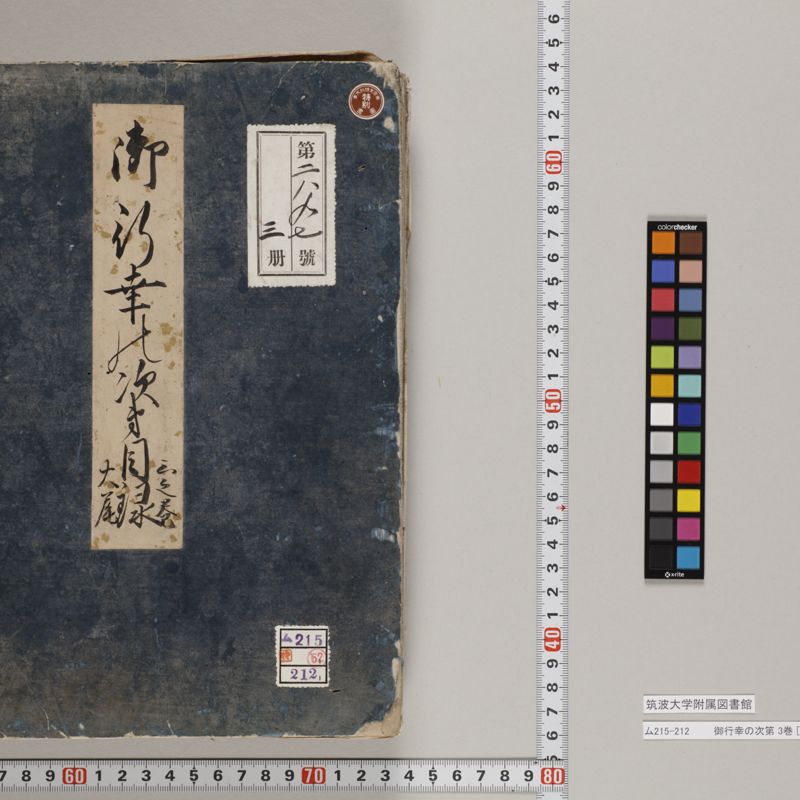 御行幸の次第目録
三之巻
大尾
第二八九七號
三册
特別
ム215
特
52
212
colorchecker
x-rite
筑波大学附属図書館
ム215-212 御行幸の次第 3巻 [
6
5
4
3
2
1
60
9
8
7
6
5
4
3
2
1
50
9
8
7
6
5
4
3
2
1
40
9
8
7
6
5
7 8 9 60 1 2 3 4 5 6 7 8 9 70 1 2 3 4 5 6 7 8 9 80